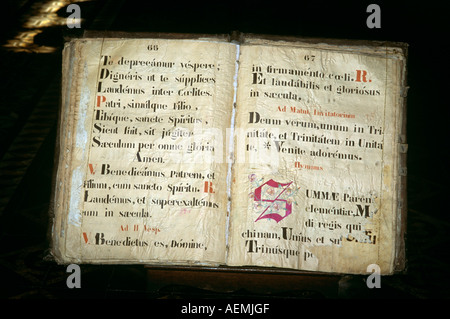 66
Te deprecámur vespere;
Dignéris ut te súpplices
Laudémus inter Cœlites.
Patri, simúlque Filio,
Tibíque, sancte Spiritus,
Sicut fuit, sit júgiter
Sæculum per omne glória
Amen.
V Benedicámus Patrem, et
Filium, cum sancto Spiritu. R
Laudémus, et superexaltémus
eum in sæcula.
Ad II Vesp.
V Benedictus es, Dómine,
67
in firmaménto cœli. R
Et laudábilis et gloriósus
in sæcula.
Ad Matut. Invitatorium
Deum verum, unum in Tri
nitáte, et Trinitátem in Unita
te, * Venite adorémus.
Hymnus
SUMMÆ Paren
clementiæ, M
di regis qui
chinam, Unius et su
Trinúsque pe
alamy
alamy
Image ID: AEMJGF
www.alamy.com